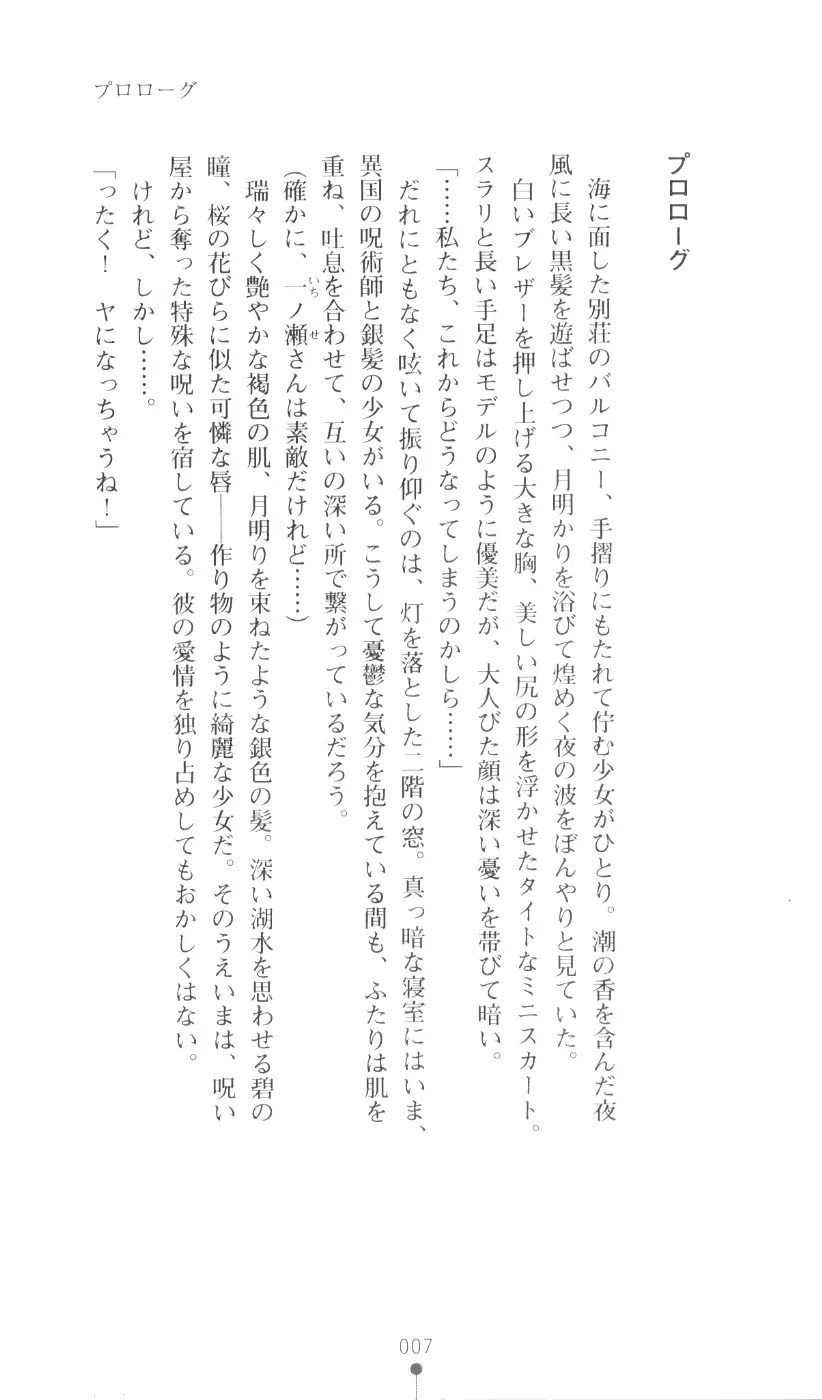 プロローグ
プロローグ
海に面した別荘のバルコニー、手摺りにもたれて佇む少女がひとり。潮の香を含んだ夜
風に長い黒髪を遊ばせつつ、月明かりを浴びて煌めく夜の波をぼんやりと見ていた。
白いブレザーを押し上げる大きな胸、美しい尻の形を浮かせたタイトなミニスカート。
スラリと長い手足はモデルのように優美だが、大人びた顔は深い憂いを帯びて暗い。
「……私たち、これからどうなってしまうのかしら……」
だれにともなく呟いて振り仰ぐのは、灯を落とした二階の窓。真っ暗な寝室にはいま、
異国の呪術師と銀髪の少女がいる。こうして憂鬱な気分を抱えている間も、ふたりは肌を
重ね、吐息を合わせて、互いの深い所で繋がっているだろう。
(確かに、一ノ瀬さんは素敵だけれど……)
いち
せ
瑞々しく艶やかな褐色の肌、月明りを束ねたような銀色の髪。深い湖水を思わせる碧の
瞳、桜の花びらに似た可憐な唇――作り物のように綺麗な少女だ。そのうえいまは、呪い
屋から奪った特殊な呪いを宿している。彼の愛情を独り占めしてもおかしくはない。
けれど、しかし……。
「ったく！　ヤになっちゃうね！」
007